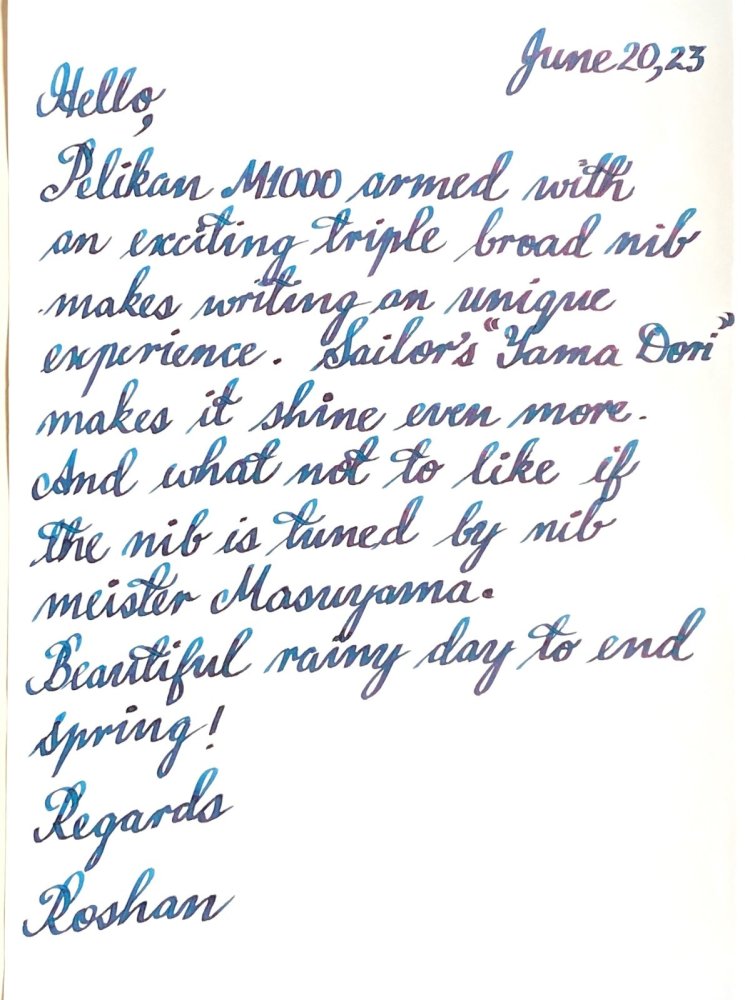 June 20, 23
Hello,
Pelikan M1000 armed with
an exciting triple broad nib
makes writing an unique
experience. Sailor's "Yama Dori"
makes it shine even more.
And what not to like if
the nib is tuned by nib
meister Masuyama.
Beautiful rainy day to end
spring!
Regards
Roshan